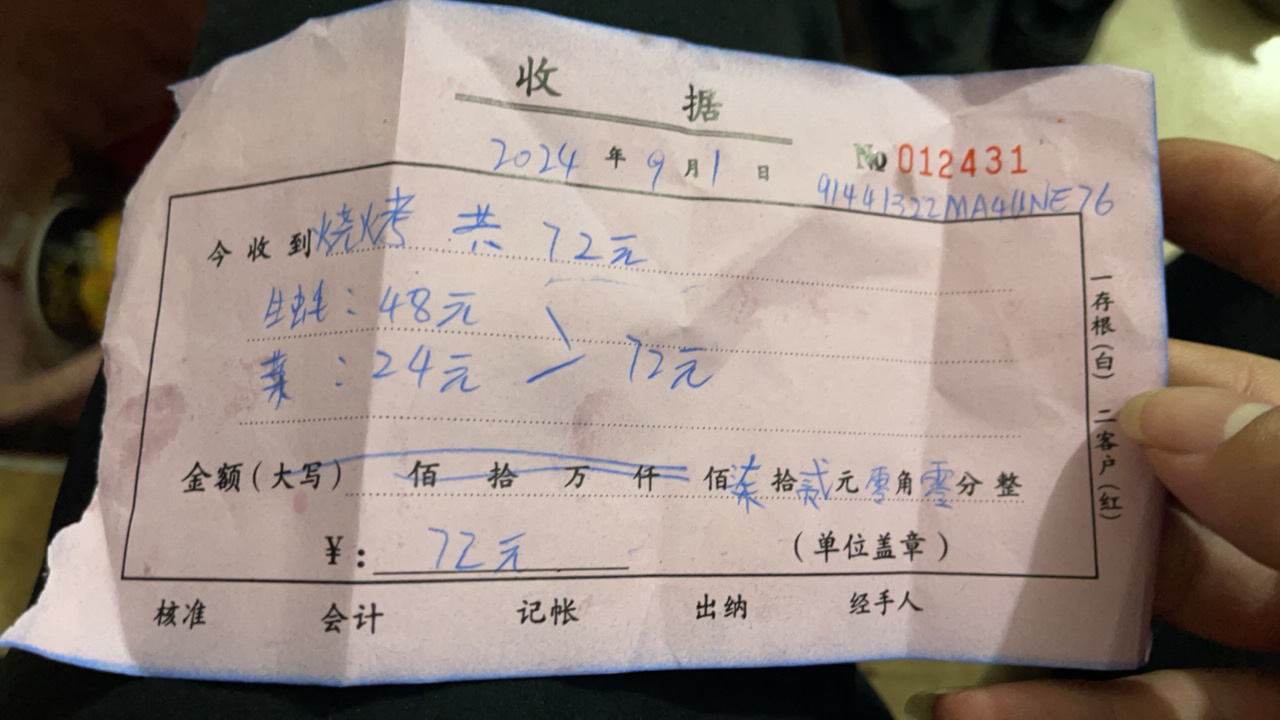 收据
2024年9月1日 No 012431
91441322MA4UNE76
今收到烧烤 共 72元
生蚝：48元
菜：24元 72元
金额(大写) 佰 拾 万 仟 佰柒拾贰元零角零分整
¥：72元 (单位盖章)
核准 会计 记帐 出纳 经手人
一存根(白) 二客户(红)